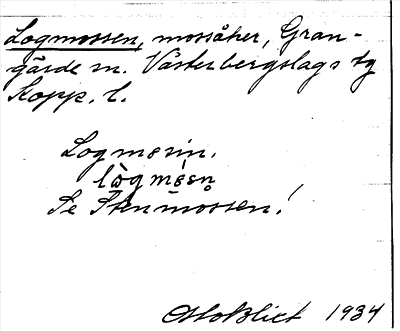 Logmossen, mossåker, Gran-
gärde sn. Västerbergslags tg
Kopp. l.
Logmosin.
lògmósn̥
Se Stenmossen!
1934